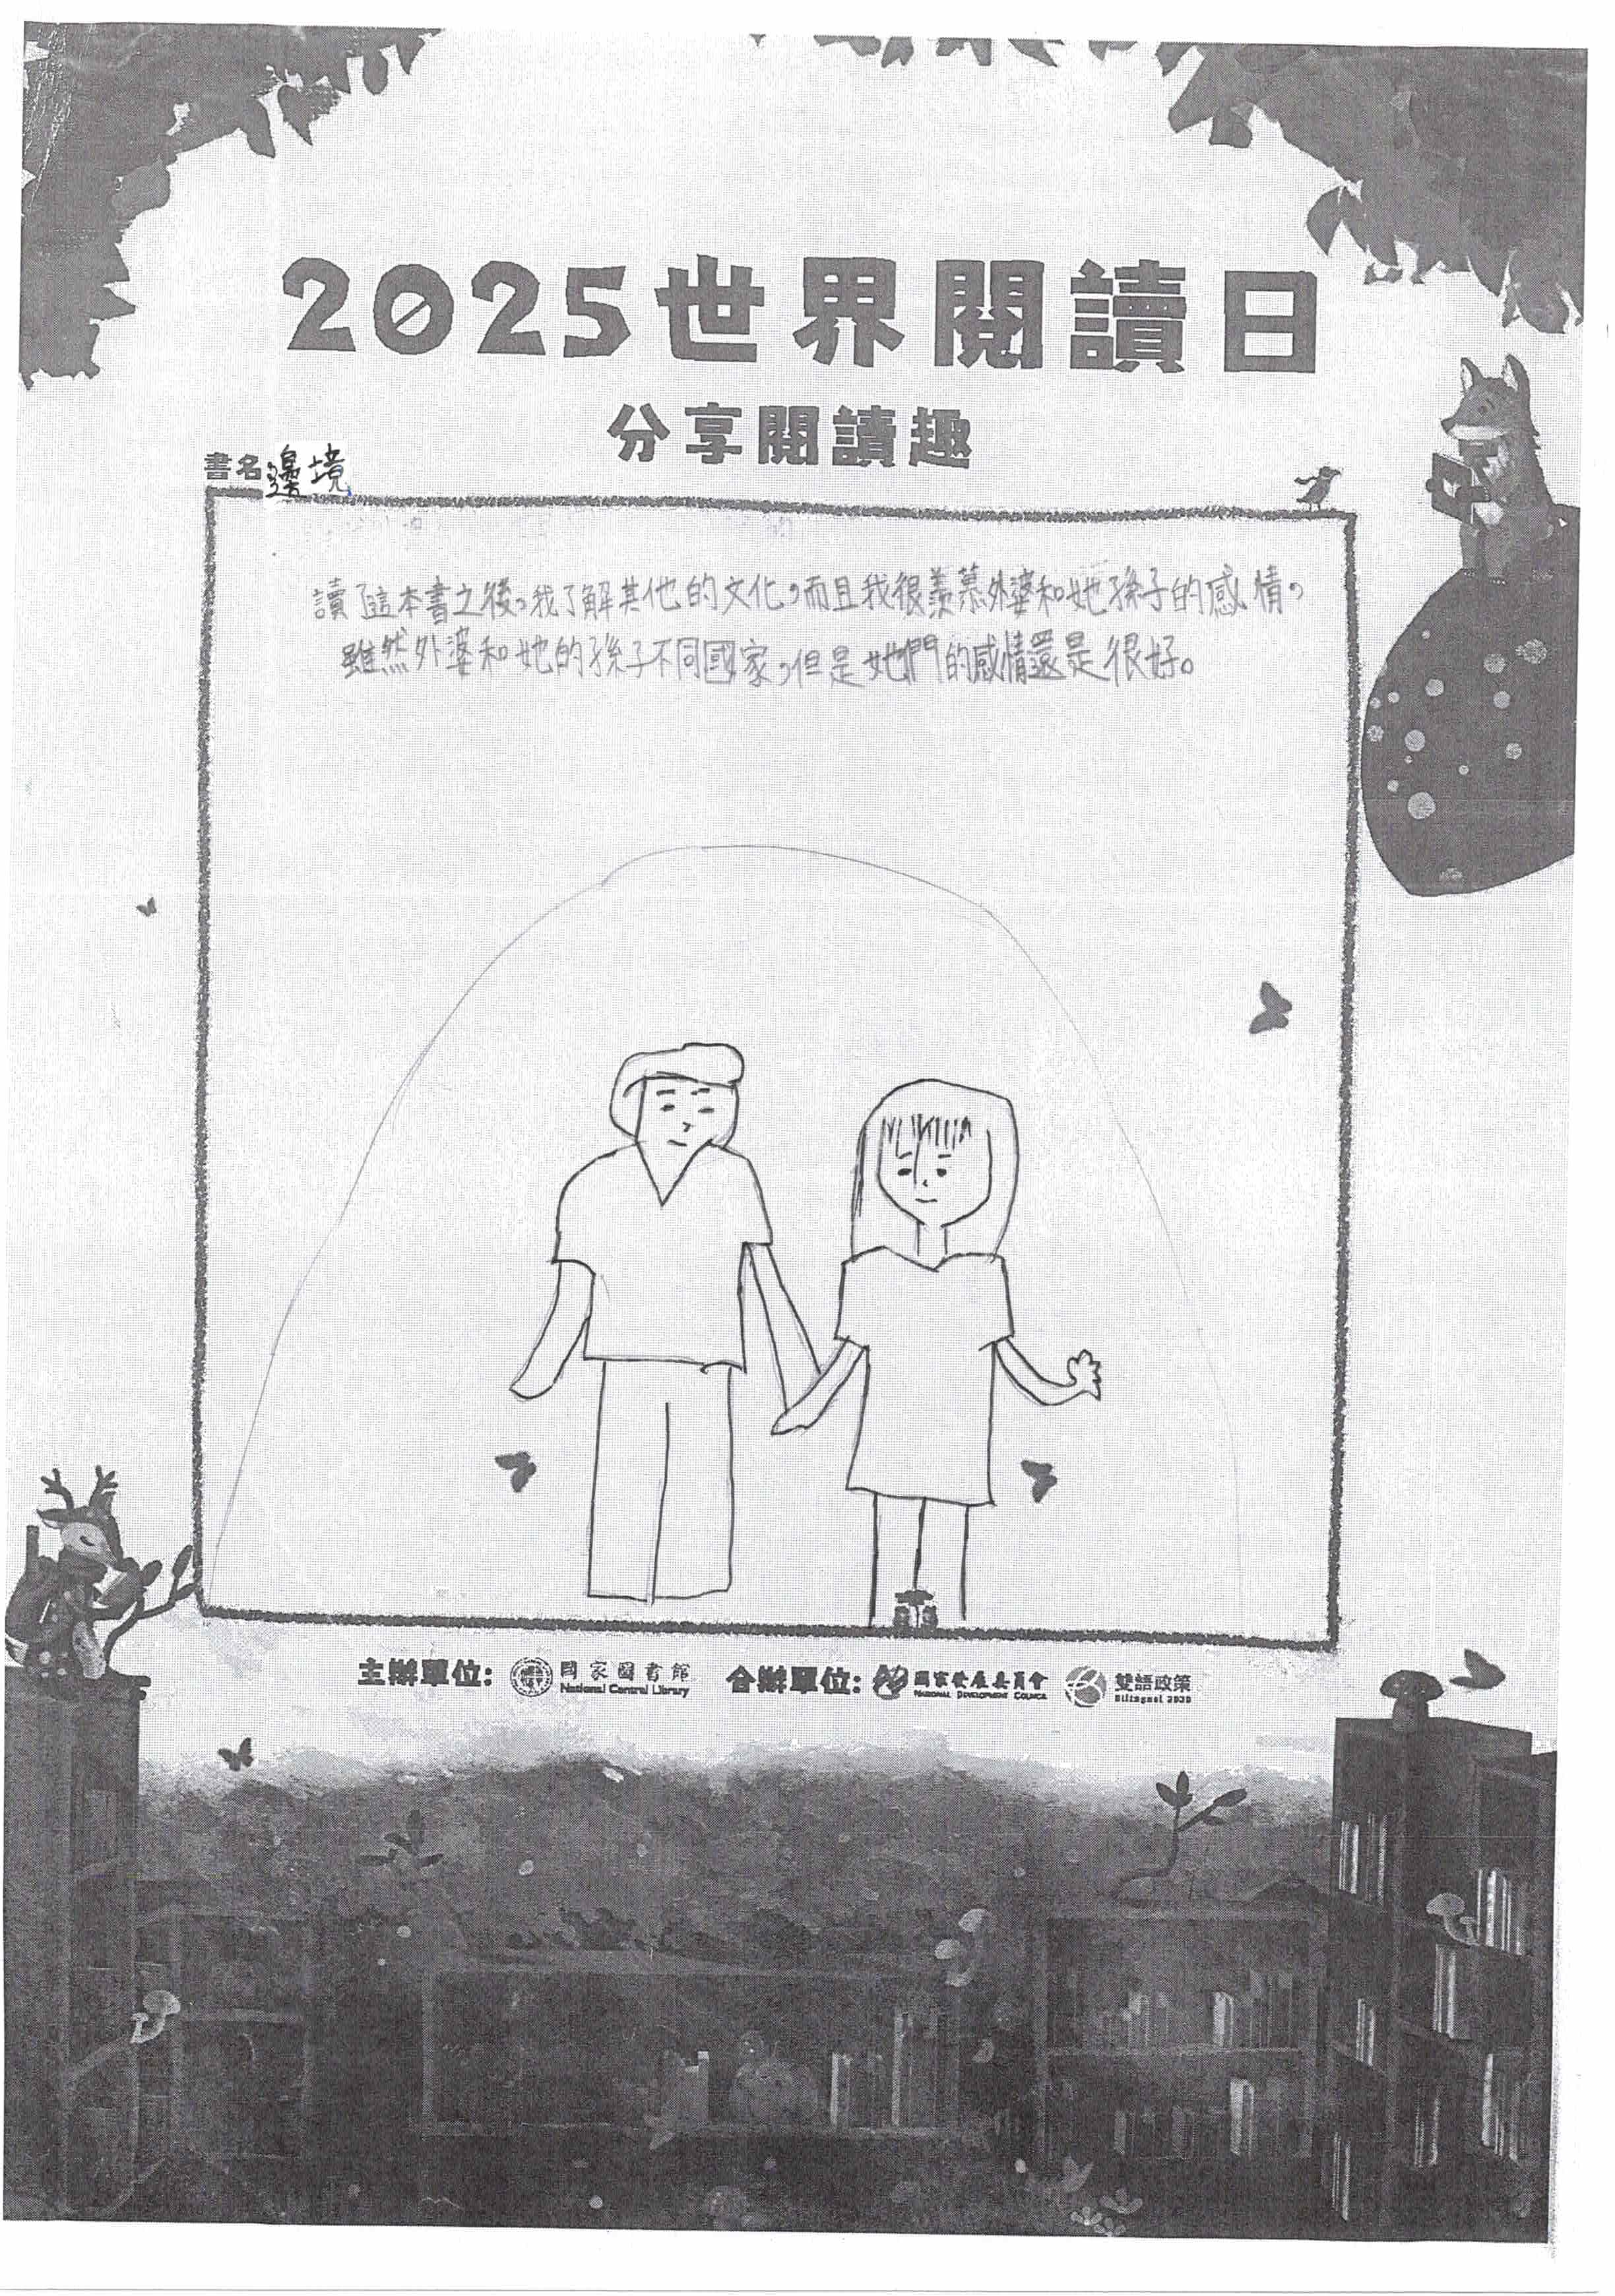 2025世界閱讀日
分享閱讀趣
書名邊境
讀了這本書之後，我了解其他的文化，而且我很羨慕外婆和她孫子的感情，
雖然外婆和她的孫子不同國家，但是她們的感情還是很好。
主辦單位: 國家圖書館 National Central Library 合辦單位: 國家發展委員會 NATIONAL DEVELOPMENT COUNCIL 雙語政策 Bilingual 2030